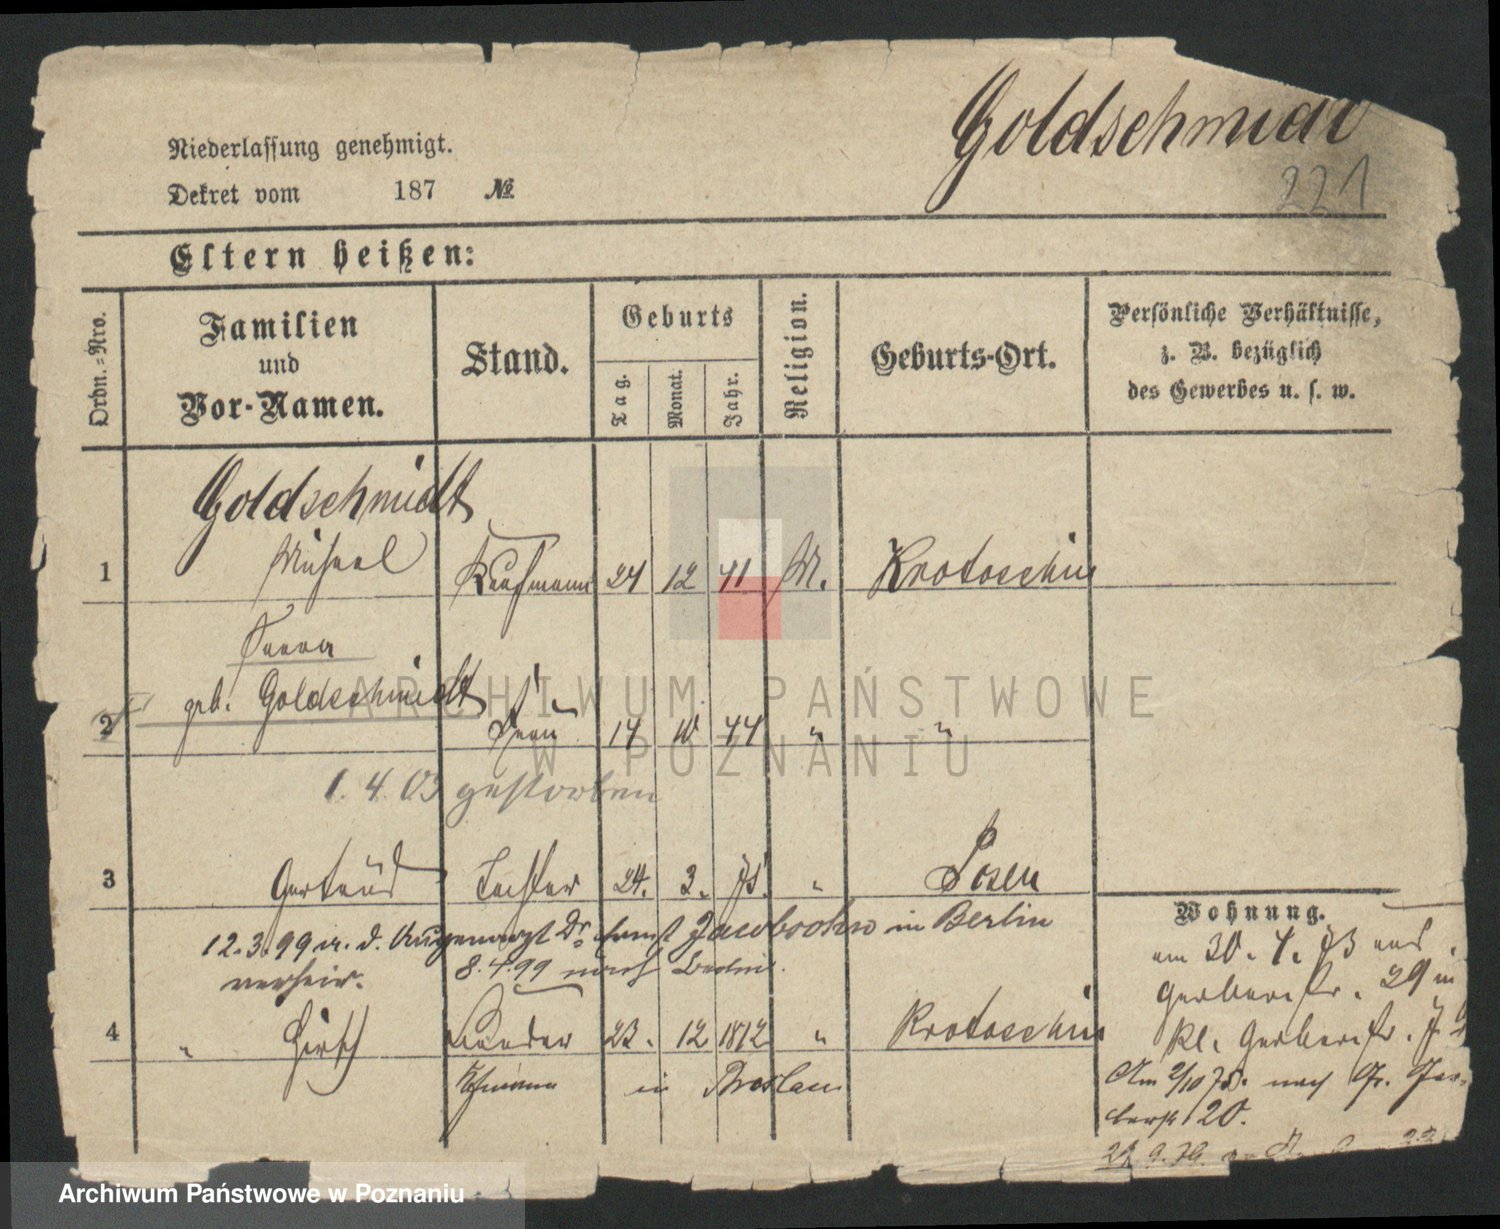 Goldschmidt
221
Niederlassung genehmigt.
Dekret vom 187 №
Eltern heißen:
Ordn.-Nro.
Familien
und
Vor-Namen.
Stand.
Geburts
Tag.
Monat.
Jahr.
Religion.
Geburts-Ort.
Persönliche Verhältnisse,
z. B. bezüglich
des Gewerbes u. s. w.
Goldschmidt
1 Michael Kaufmann 24 12 41 M. Krotoschin
geb. Goldschmidt
2 Frau 14 10 44 " "
1. 4. 03 gestorben
3 Gertrud Tochter 24. 3. 75. " Posen
12.3.99 m. d. Augenarzt Dr Ernst Jacobsohn in Berlin
verheir. 8.4.99 nach Berlin.
4 " Hirsch Bruder 23. 12 1872 " Krotoschin
Kfmann in Breslau
Wohnung.
am 30. 4. 73 aus
Gerberstr. 29 in
Kl. Gerberstr.
Am 2/10 75. nach Gr. Ger-
berstr 20.
ARCHIWUM PAŃSTWOWE
W POZNANIU
Archiwum Państwowe w Poznaniu